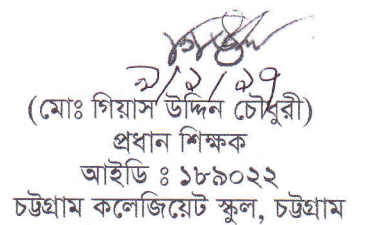 (মোঃ গিয়াস উদ্দিন চৌধুরী)
প্রধান শিক্ষক
আইডি ঃ ১৮৯০২২
চট্টগ্রাম কলেজিয়েট স্কুল, চট্টগ্রাম